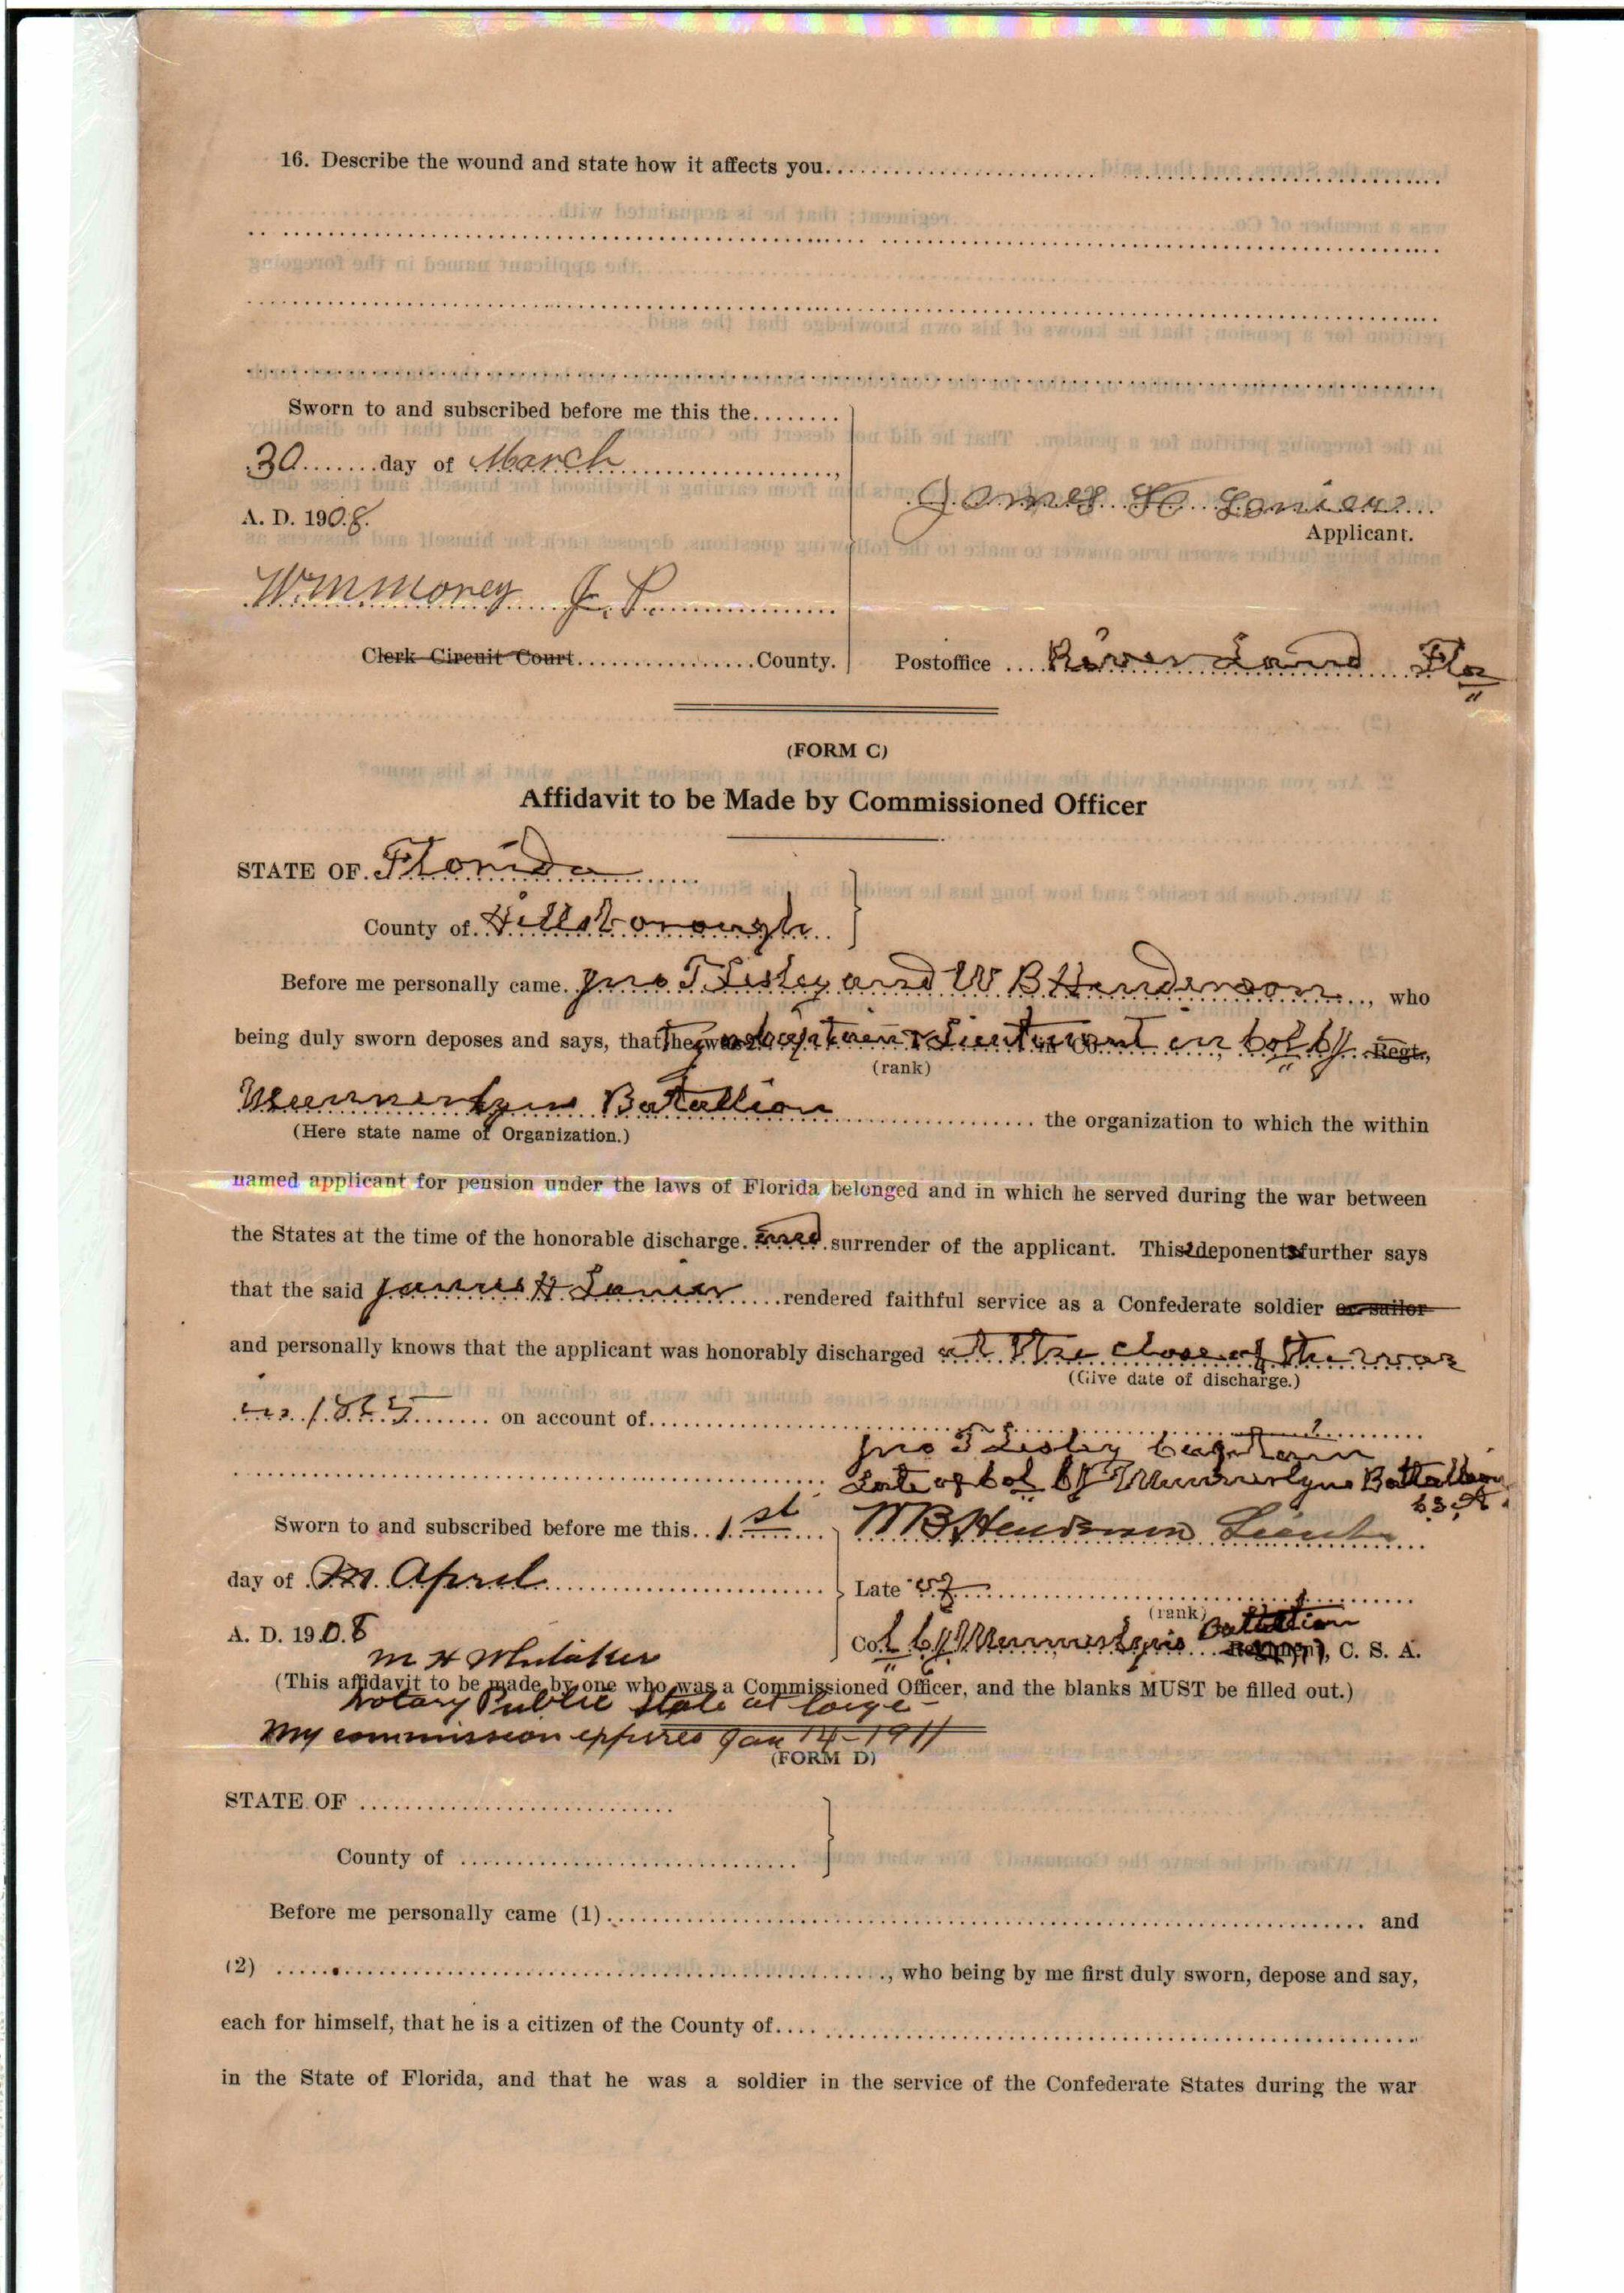 16. Describe the wound and state how it affects you
Sworn to and subscribed before me this the
30 day of March,
A. D. 1908.
James H Lanier
Applicant.
Wm Morey J. P.
Clerk Circuit Court County.
Postoffice River Land Fla
(FORM C)
Affidavit to be Made by Commissioned Officer
STATE OF Florida
County of Hillsborough
Before me personally came Jno T Lesley and W B Henderson, who
being duly sworn deposes and says, that they was Captain & Lieutenant in Col C J Regt.,
(rank)
Munnerlyns Batallion the organization to which the within
(Here state name of Organization.)
named applicant for pension under the laws of Florida belonged and in which he served during the war between
the States at the time of the honorable discharge and surrender of the applicant. This deponents further says
that the said James H Lanier rendered faithful service as a Confederate soldier or sailor
and personally knows that the applicant was honorably discharged at the close of the war
(Give date of discharge.)
in 1865 on account of
Jno T Lesley Captain
Late of Col C J Munnerlyns Battallion
C S A.
Sworn to and subscribed before me this 1st
W B Henderson Lieut
day of April
Late of
(rank)
A. D. 1908
Col C J Munnerlyns Battallion Regiment, C. S. A.
M H Whitaker
(This affidavit to be made by one who was a Commissioned Officer, and the blanks MUST be filled out.)
Notary Public State at large
My commission expires Jan 14-1911
(FORM D)
STATE OF
County of
Before me personally came (1) and
(2) , who being by me first duly sworn, depose and say,
each for himself, that he is a citizen of the County of
in the State of Florida, and that he was a soldier in the service of the Confederate States during the war